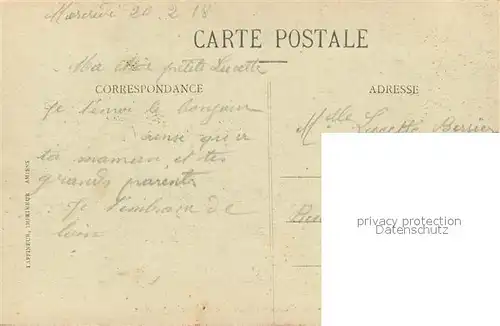 Mercredi 20 2 18
CARTE POSTALE
Ma chère petite Lucette
CORRESPONDANCE
ADRESSE
Je t'envoi le bonjour
ainsi qu'a
ta maman et tes
grands parents
Je t'embrasse de
loin
Mlle Lucette
privacy protection
datenschutz
LAFFINEUR, IMPRIMEUR AMIENS